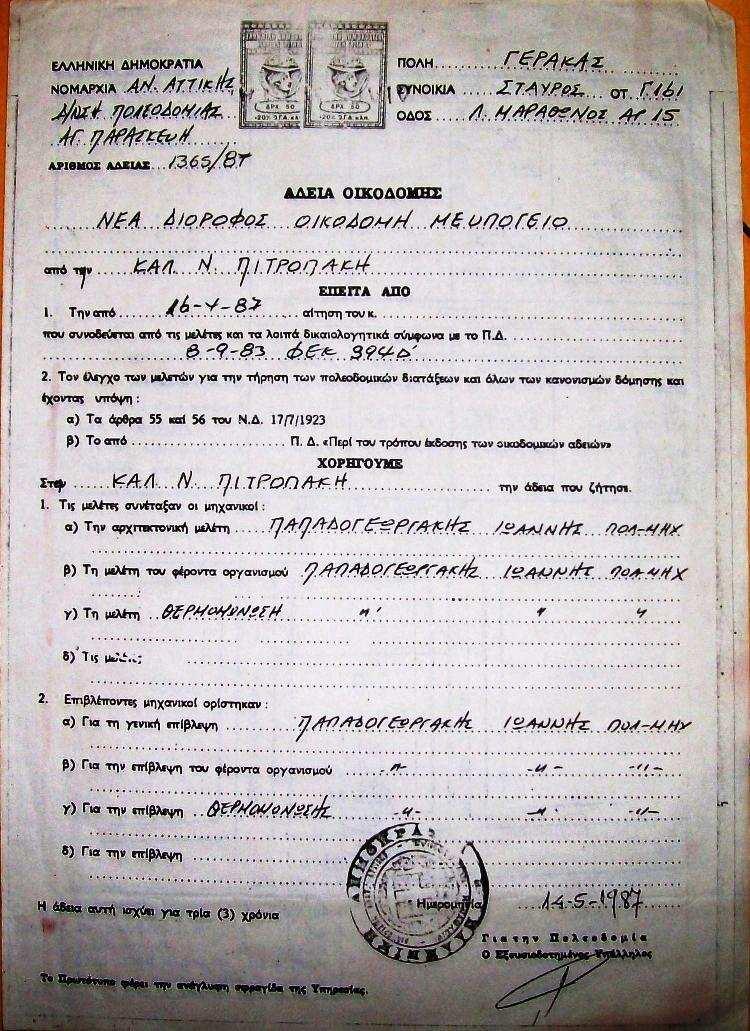 ΕΛΛΗΝΙΚΗ ΔΗΜΟΚΡΑΤΙΑ
ΝΟΜΑΡΧΙΑ ΑΝ. ΑΤΤΙΚΗΣ
Δ/ΝΣΗ ΠΟΛΕΟΔΟΜΙΑΣ
ΑΓ. ΠΑΡΑΣΚΕΥΗ
ΑΡΙΘΜΟΣ ΑΔΕΙΑΣ 1365/87
ΔΡΧ. 50
ΔΡΧ. 50
ΠΟΛΗ ΓΕΡΑΚΑΣ
ΣΥΝΟΙΚΙΑ ΣΤΑΥΡΟΣ ΟΤ Γ161
ΟΔΟΣ Λ. ΜΑΡΑΘΩΝΟΣ ΑΡ 15
ΑΔΕΙΑ ΟΙΚΟΔΟΜΗΣ
ΝΕΑ ΔΙΟΡΟΦΟΣ ΟΙΚΟΔΟΜΗ ΜΕ ΥΠΟΓΕΙΟ
από την ΚΑΛ. Ν. ΠΙΤΡΟΠΑΚΗ
ΕΠΕΙΤΑ ΑΠΟ
1. Την από 16-4-87 αίτηση του κ.
που συνοδεύεται από τις μελέτες και τα λοιπά δικαιολογητικά σύμφωνα με το Π.Δ.
8-9-83 ΦΕΚ 394Δ'
2. Τον έλεγχο των μελετών για την τήρηση των πολεοδομικών διατάξεων και όλων των κανονισμών δόμησης και
έχοντας υπόψη :
α) Τα άρθρα 55 και 56 του Ν.Δ. 17/7/1923
β) Το από Π. Δ. «Περί του τρόπου έκδοσης των οικοδομικών αδειών»
ΧΟΡΗΓΟΥΜΕ
Στην ΚΑΛ Ν. ΠΙΤΡΟΠΑΚΗ την άδεια που ζήτησε.
1. Τις μελέτες συνέταξαν οι μηχανικοί :
α) Την αρχιτεκτονική μελέτη ΠΑΠΑΔΟΓΕΩΡΓΑΚΗΣ ΙΩΑΝΝΗΣ ΠΟΛ-ΜΗΧ
β) Τη μελέτη του φέροντα οργανισμού ΠΑΠΑΔΟΓΕΩΡΓΑΚΗΣ ΙΩΑΝΝΗΣ ΠΟΛ-ΜΗΧ
γ) Τη μελέτη ΘΕΡΜΟΜΟΝΩΣΗ " " "
δ) Τις μελέτες
2. Επιβλέποντες μηχανικοί ορίστηκαν :
α) Για τη γενική επίβλεψη ΠΑΠΑΔΟΓΕΩΡΓΑΚΗΣ ΙΩΑΝΝΗΣ ΠΟΛ-ΜΗΧ
β) Για την επίβλεψη του φέροντα οργανισμού -"- -"- -"-
γ) Για την επίβλεψη ΘΕΡΜΟΜΟΝΩΣΗΣ -"- -"- -"-
δ) Για την επίβλεψη
ΕΛΛΗΝΙΚΗ ΔΗΜΟΚΡΑΤΙΑ
Η άδεια αυτή ισχύει για τρία (3) χρόνια
Ημερομηνία 14-5-1987
Για την Πολεοδομία
Ο Εξουσιοδοτημένος Υπάλληλος
Το Πρωτότυπο φέρει την ανάγλυφη σφραγίδα της Υπηρεσίας.